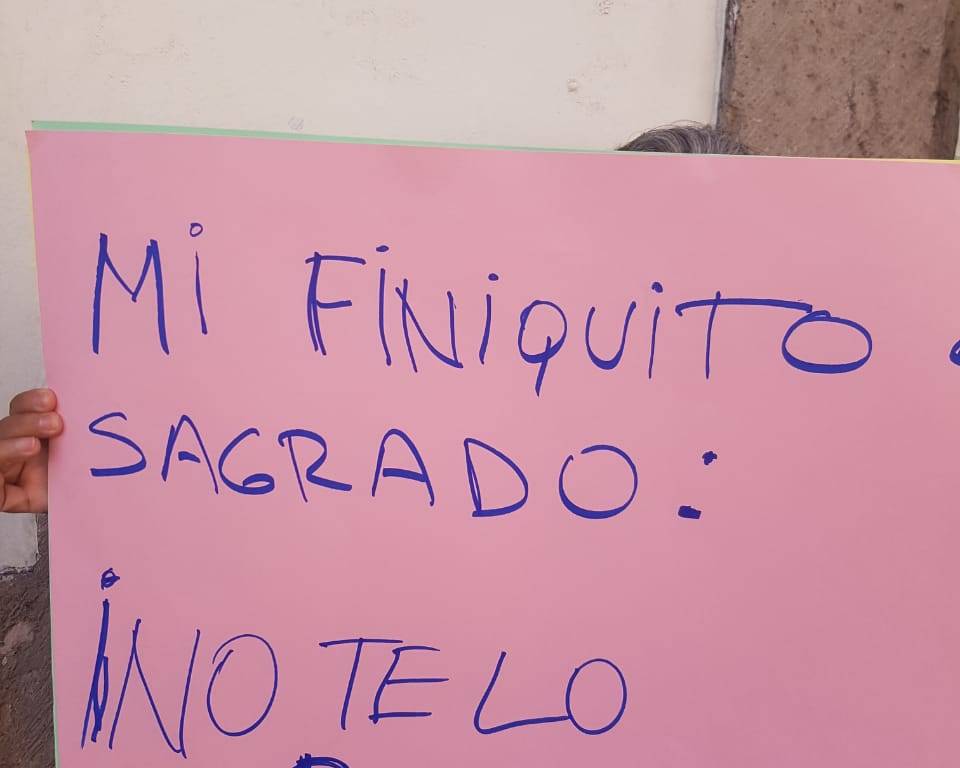 Mi FiNiQUiTO
SAGRADO:
¡NO TE LO